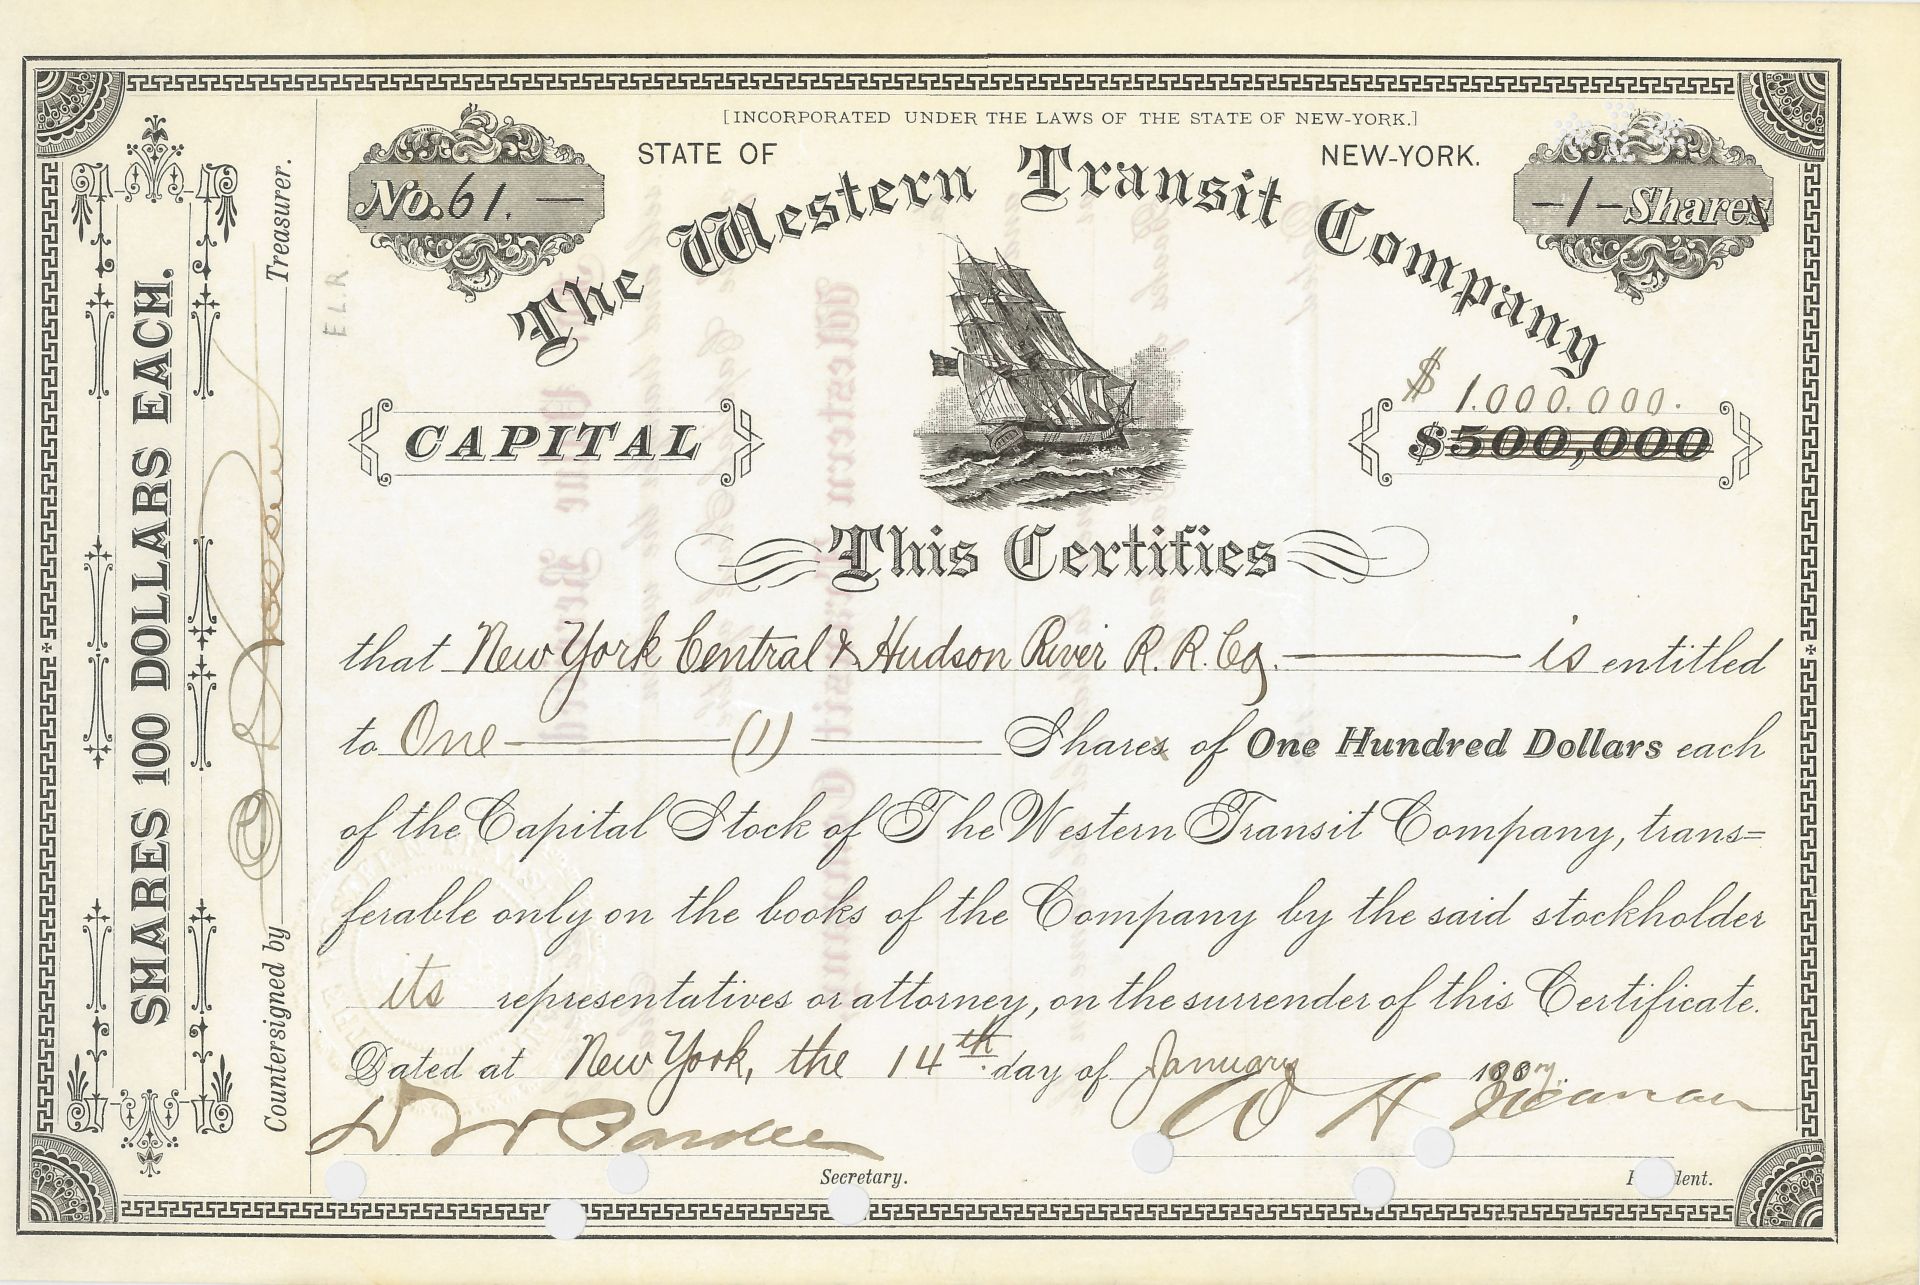 [INCORPORATED UNDER THE LAWS OF THE STATE OF NEW-YORK.]
STATE OF NEW-YORK.
No. 61. —
The Western Transit Company
– 1 – Shares
E.L.R.
CAPITAL
$ 1.000.000.
$500,000
This Certifies
that New York Central & Hudson River R. R. Co. is entitled
to One (1) Shares of One Hundred Dollars each
of the Capital Stock of The Western Transit Company, trans=
ferable only on the books of the Company by the said stockholder
its representatives or attorney, on the surrender of this Certificate.
Dated at New York, the 14th day of January 188
Secretary.
SHARES 100 DOLLARS EACH.
Countersigned by Treasurer.